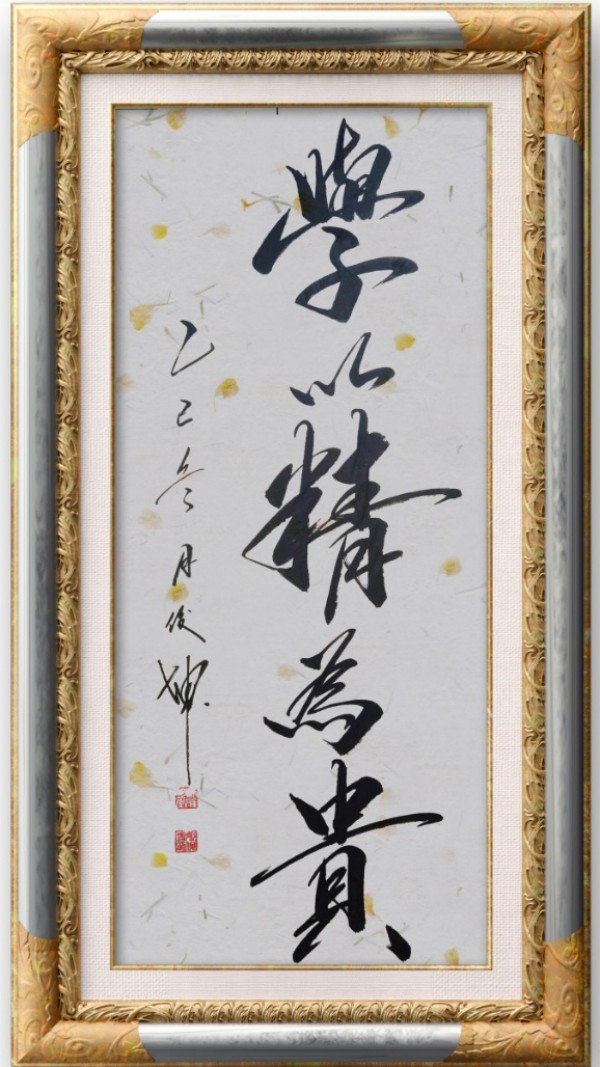 學以精為貴
乙巳冬月俊坤